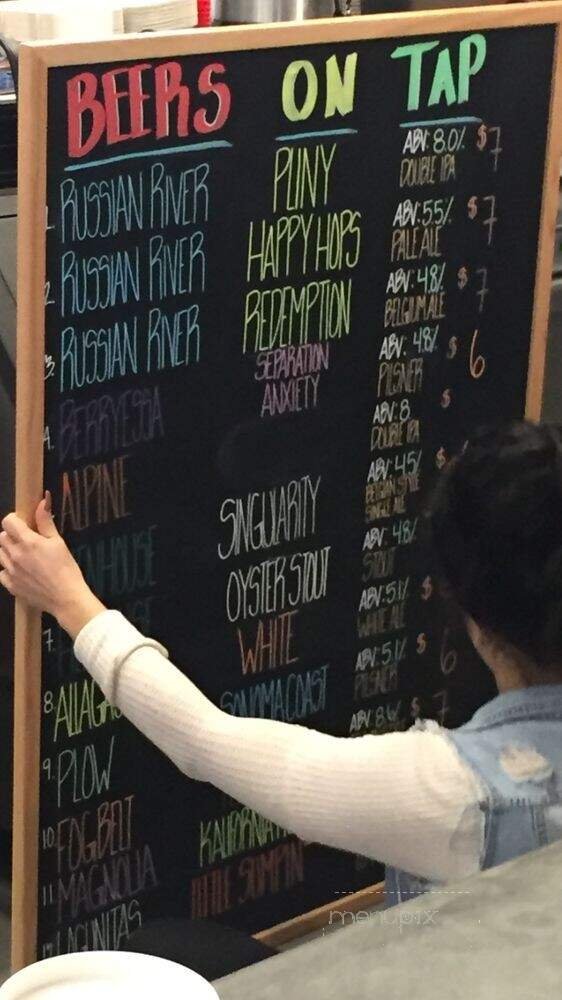 BEERS ON TAP
1. RUSSIAN RIVER PLINY ABV: 8.0% $7
DOUBLE IPA
2. RUSSIAN RIVER HAPPY HOPS ABV: 5.5% $7
PALE ALE
3. RUSSIAN RIVER REDEMPTION ABV: 4.8% $7
BELGIUM ALE
4. BERRYESSA SEPARATION ANXIETY ABV: 4.8% $6
PILSNER
ALPINE ABV: 8 $
DOUBLE IPA
ENHOUSE SINGULARITY ABV: 4.5% $
BELGIAN STYLE
SINGLE ALE
7. OYSTER STOUT ABV: 4.8%
STOUT
8. ALLAGA WHITE ABV: 5.1% $
WHITE ALE
9. PLOW SONOMA COAST ABV: 5.1% $6
PILSNER
10. FOGBELT ABV: 8 $7
11. MAGNOLIA KALIFORNIA
LAGUNITAS LITTLE SUMPIN
menupix